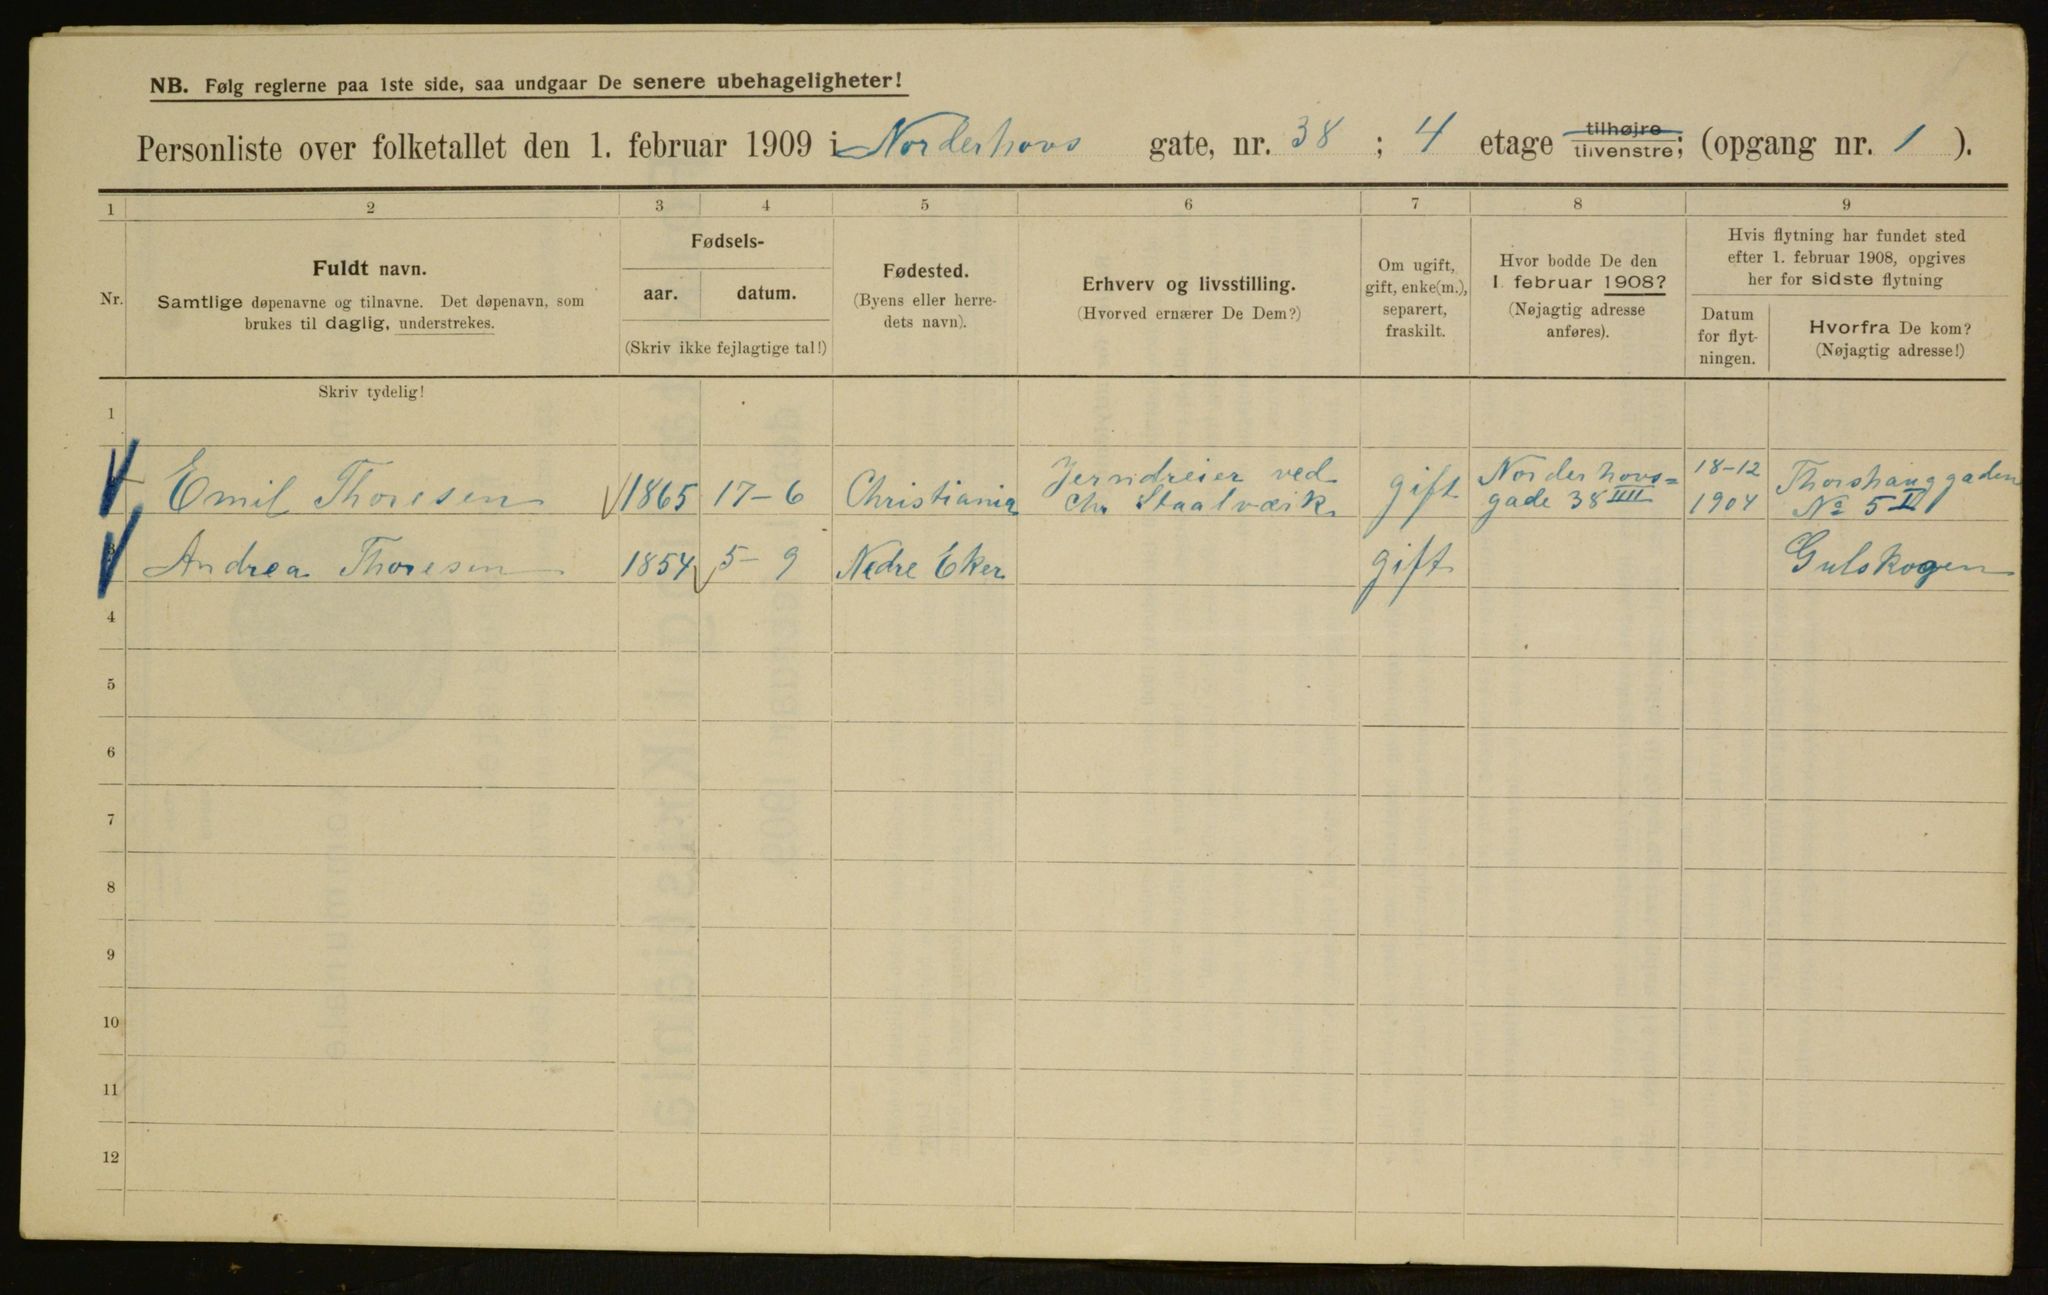 NB. Følg reglerne paa 1ste side, saa undgaar De senere ubehageligheter!
Personliste over folketallet den 1. februar 1909 i Norderhovs gate, nr. 38 ; 4 etage tilhøjre tilvenstre; (opgang nr. 1 ).
1 2 3 4 5 6 7 8 9
Nr.
Fuldt navn.
Samtlige døpenavne og tilnavne. Det døpenavn, som
brukes til daglig, understrekes.
Fødsels-
aar. datum.
(Skriv ikke fejlagtige tal!)
Fødested.
(Byens eller herre-
dets navn).
Erhverv og livsstilling.
(Hvorved ernærer De Dem?)
Om ugift,
gift, enke(m.),
separert,
fraskilt.
Hvor bodde De den
1. februar 1908?
(Nøjagtig adresse
anføres).
Hvis flytning har fundet sted
efter 1. februar 1908, opgives
her for sidste flytning
Datum
for flyt-
ningen.
Hvorfra De kom?
(Nøjagtig adresse!)
Skriv tydelig!
1
Emil Thoresen 1865 17-6 Christiania Jerndreier ved Chr. Staalværk gift Norderhovs=gade 38 IIII 18-12 1904 Thorshauggaden No 5 II
3 Andrea Thoresen 1854 5-9 Nedre Eker gift Gulskogen
4
5
6
7
8
9
10
11
12